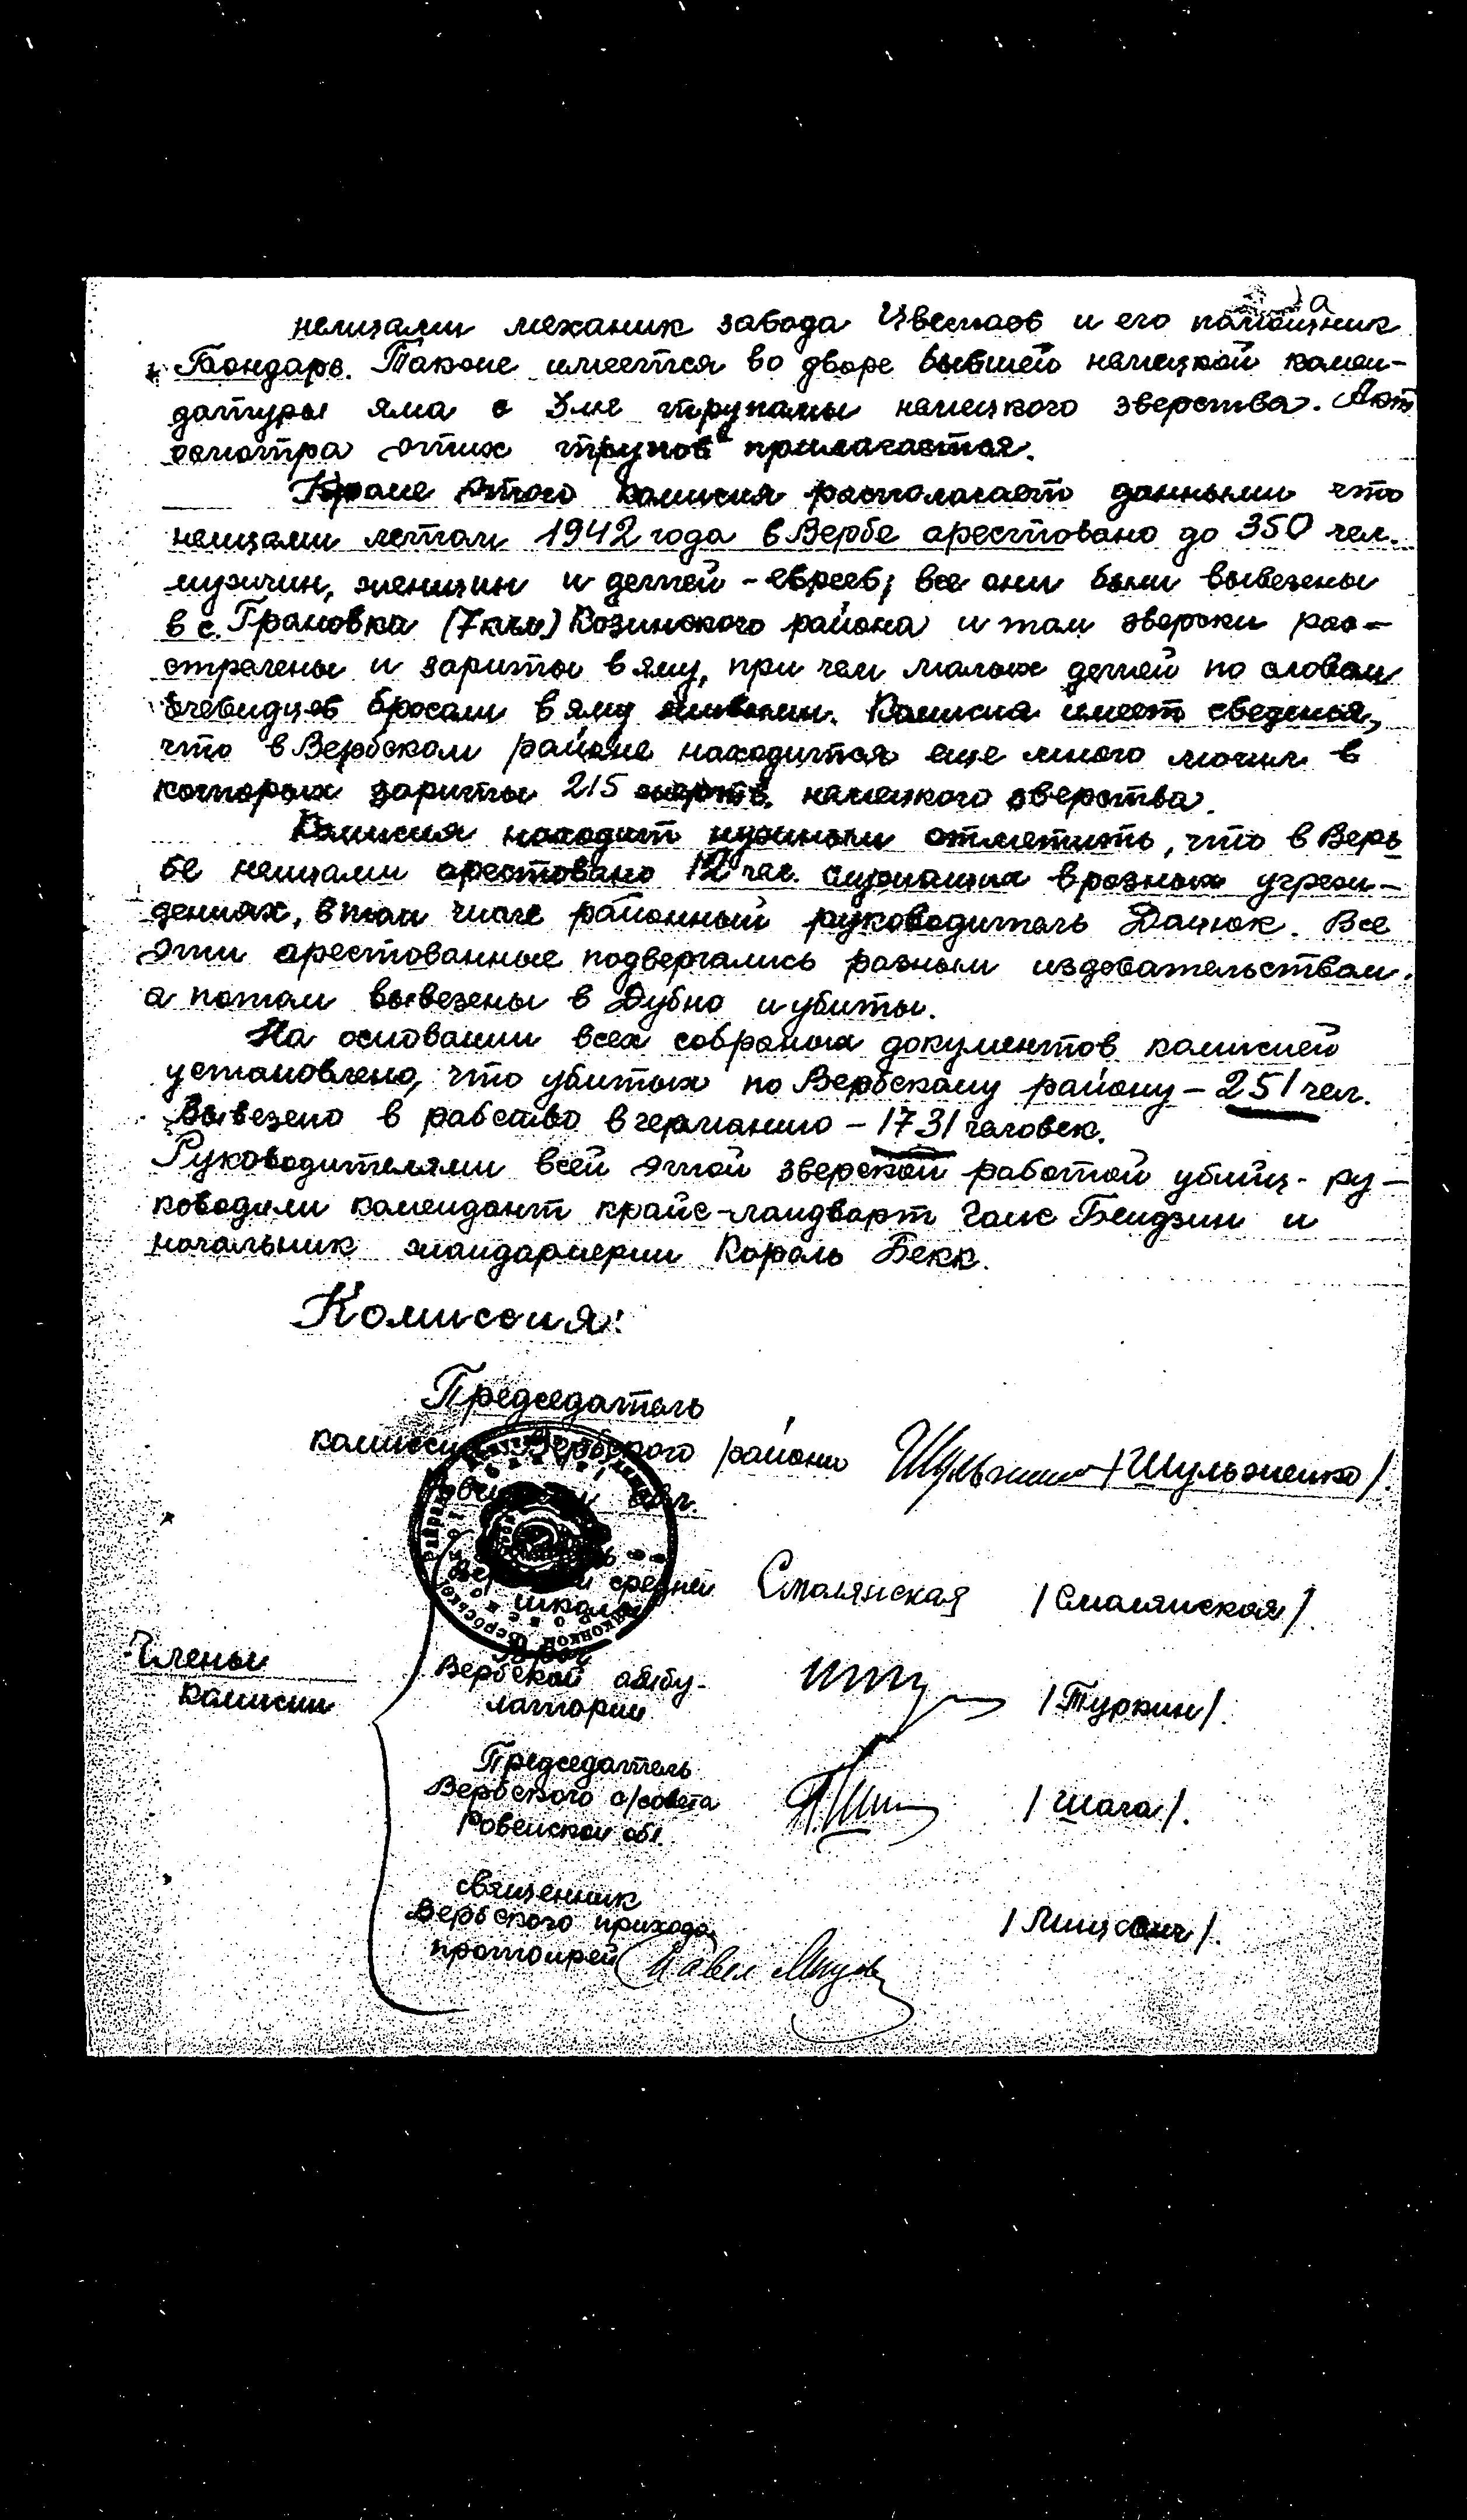 а
немцами механик завода Цветаев и его памощник
Бондарь. Также имеется во дворе бывшей немецкой комен-
датуры яма с 3мя трупамы немецкого зверства. Акт
осмотра этих трупов прилагается.
Кроме этого комисия располагает данными что
немцами летом 1942 года в Вербе арестовано до 350 чел.
мужчин, женщин и детей - евреев; все они были вывезены
в с. Грановка (7 км) Козинского района и там зверски рас-
стрелены и зариты в яму, при чем малых детей по словам
очевидцев бросали в яму живыми. Комисия имеет сведенья,
что в Вербском районе находится еще много могил в
которых зариты 215 жертв немецкого зверства.
Комисия находит нужным отметить, что в Верь
бе немцами арестовано 12 чел. служащих в разных учреж-
дениях, в том числе районный руководитель Дацюк. Все
эти арестованные подвергались разным издевательствам.
а потом вывезены в Дубно и убиты.
На основании всех собраных документов комисией
установлено, что убитых по Вербскому району - 251 чел.
Вывезено в рабство в германию - 1731 человек.
Руководителями всей этой зверской работой убийц - ру-
ководили комендант крайс-ландварт Ганс Бендзин и
начальник жандармерии Король Бекк.
Комиссия:
Председатель
комиссии Вербского района Шульженко /Шульженко/.
обл.
средней Смолянская /Смолянская/.
школы
Члены
комисии
Врач
Вербской амбу-
латории /Туркин/.
Председатель
Вербского с/совета /Шага/.
Ровенской обл.
священник
Вербского прихода
протоирей Павел